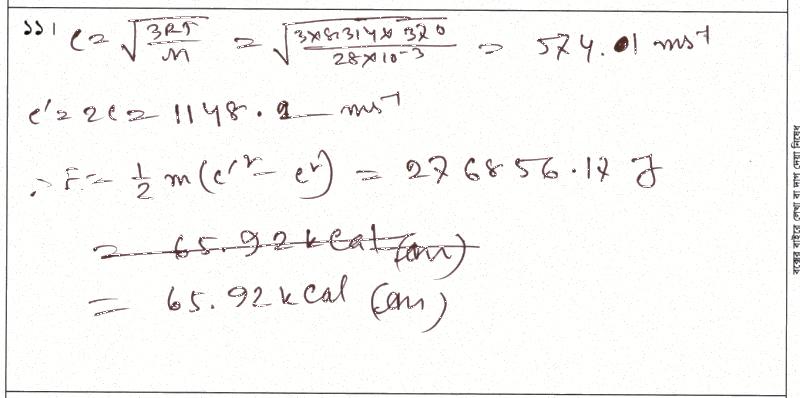 ১১। c = √(3RT/M) = √(3×8.314×370/28×10⁻³) = 574.01 ms⁻¹
c' = 2c = 1148.1 ms⁻¹
∴ E = ½ m(c'² - c²) = 276856.17 J
= 65.92 kcal (Ans)
= 65.92 kcal (Ans)
বক্সের বাইরে লেখা বা দাগ দেয়া নিষেধ